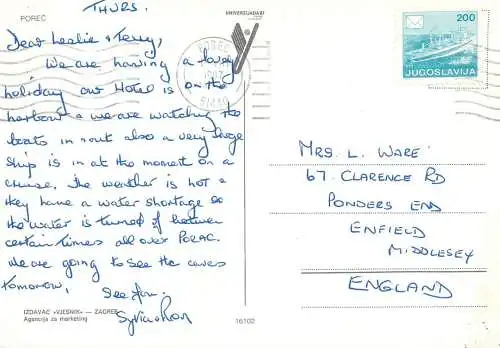 POREČ
THURS.
Dear Leslie & Terry,
We are having a lovely
holiday our Hotel is on the
harbour & we are watching the
boats in & out also a very large
ship is in at the moment on a
cruise. The weather is hot &
they have a water shortage so
the water is turned of between
certain times all over PORAC.
We are going to see the caves
tomorrow,
See You.
IZDAVAČ »VJESNIK« — ZAGREB
Agencija za marketing
16102
UNIVERZIJADA 87
200
JUGOSLAVIJA
MRS. L. WARE
67. CLARENCE RD
PONDERS END
ENFIELD
MIDDLESEY
ENGLAND